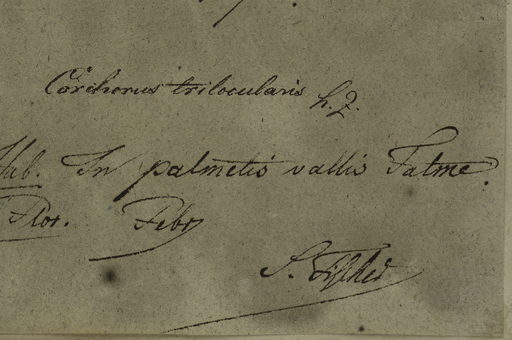 Corchorus trilocularis h. L.
Hab. In palmetis vallis Fatme.
Flor. Febr
S. Fischer